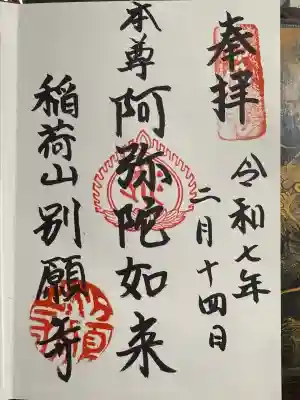 奉拝
令和七年
二月十四日
本尊
阿弥陀如来
稲荷山別願寺